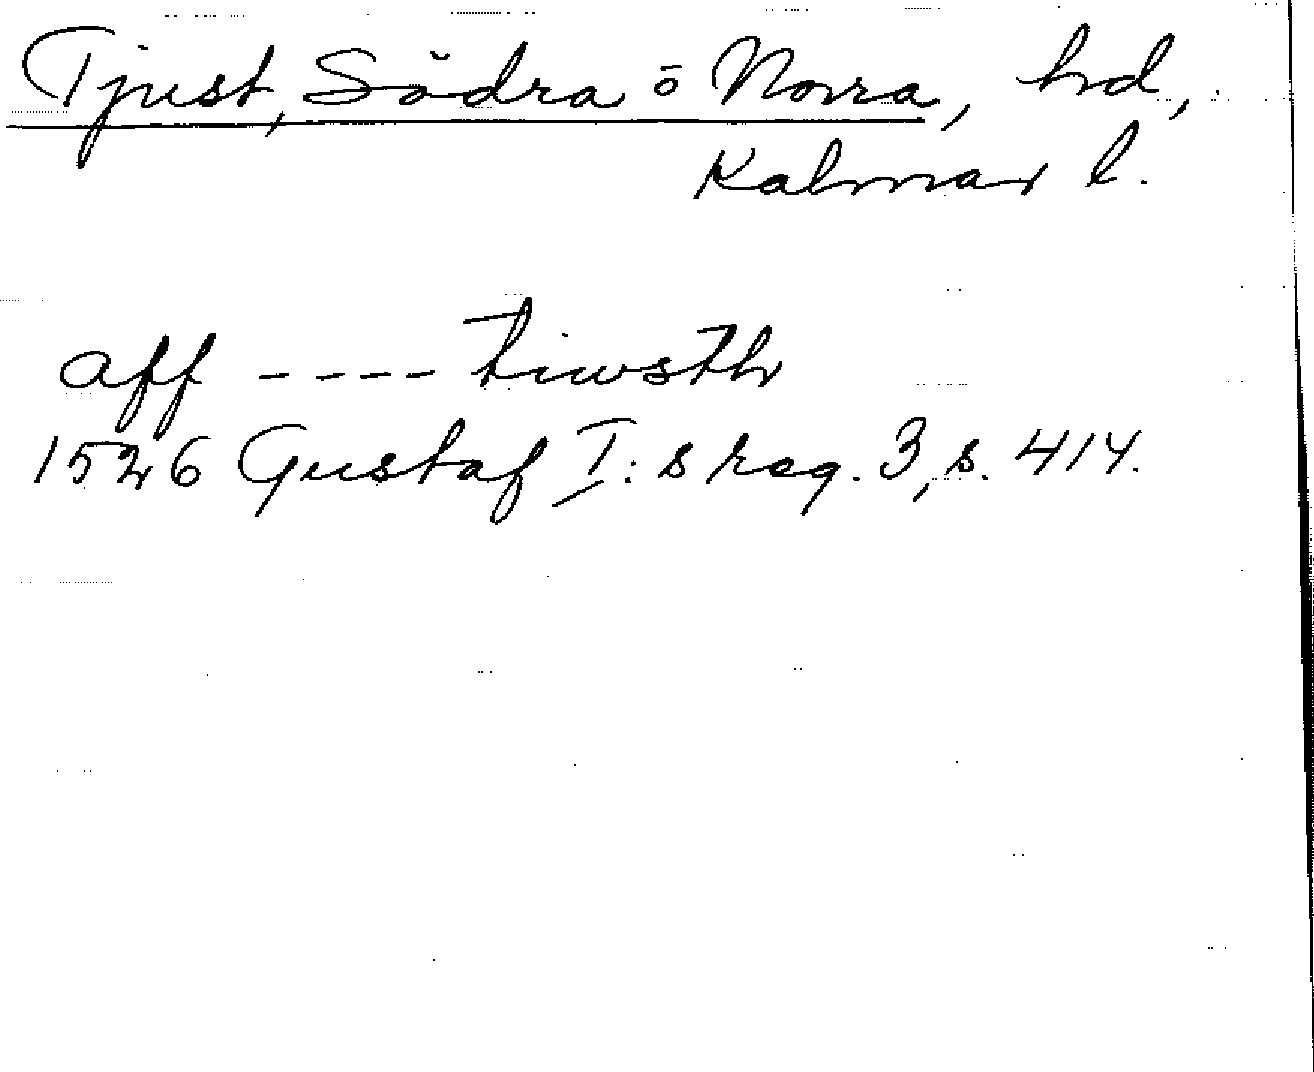 Tjust, Södra o Norra, hd,
Kalmar l.
aff ---- tiwsth
1526 Gustaf I:s reg. 3, s. 414.